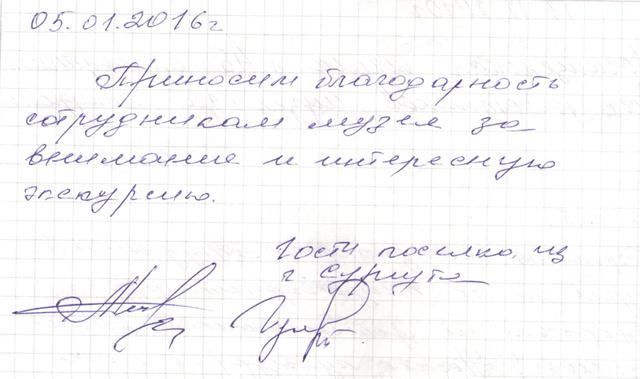 05.01.2016г
Приносим благодарность
сотрудникам музея за
внимание и интересную
экскурсию.
Гости поселка из
г. Сургута